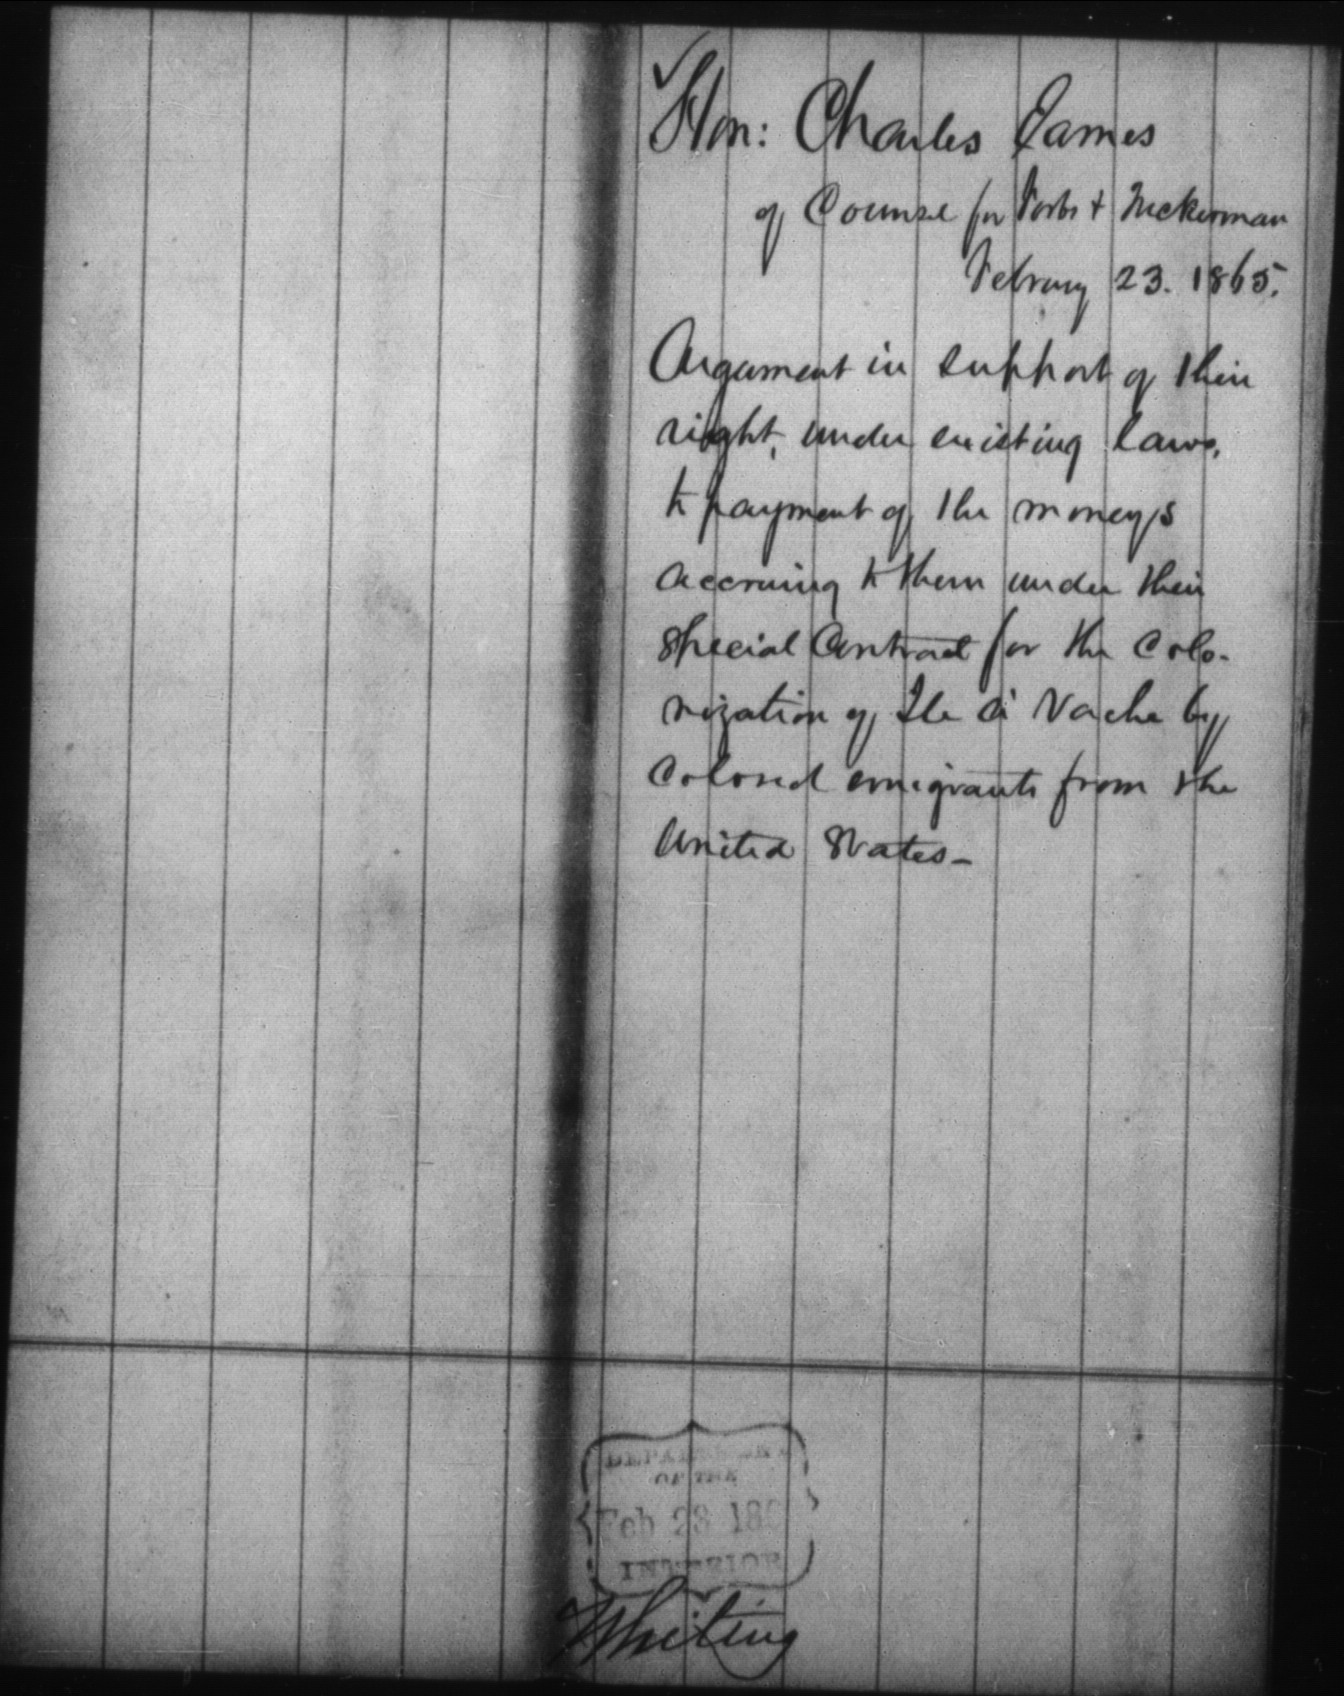 Hon: Charles Eames
of Counsel for Forbs & Tuckerman
February 23. 1865.
Argument in support of their
right, under existing laws,
to payment of the moneys
accruing to them under their
special Contract for the Colo-
nization of Ile à Vache by
Colored emigrants from the
United States-
DEPARTMENT
OF THE
Feb 23 186
INTERIOR
Whiting